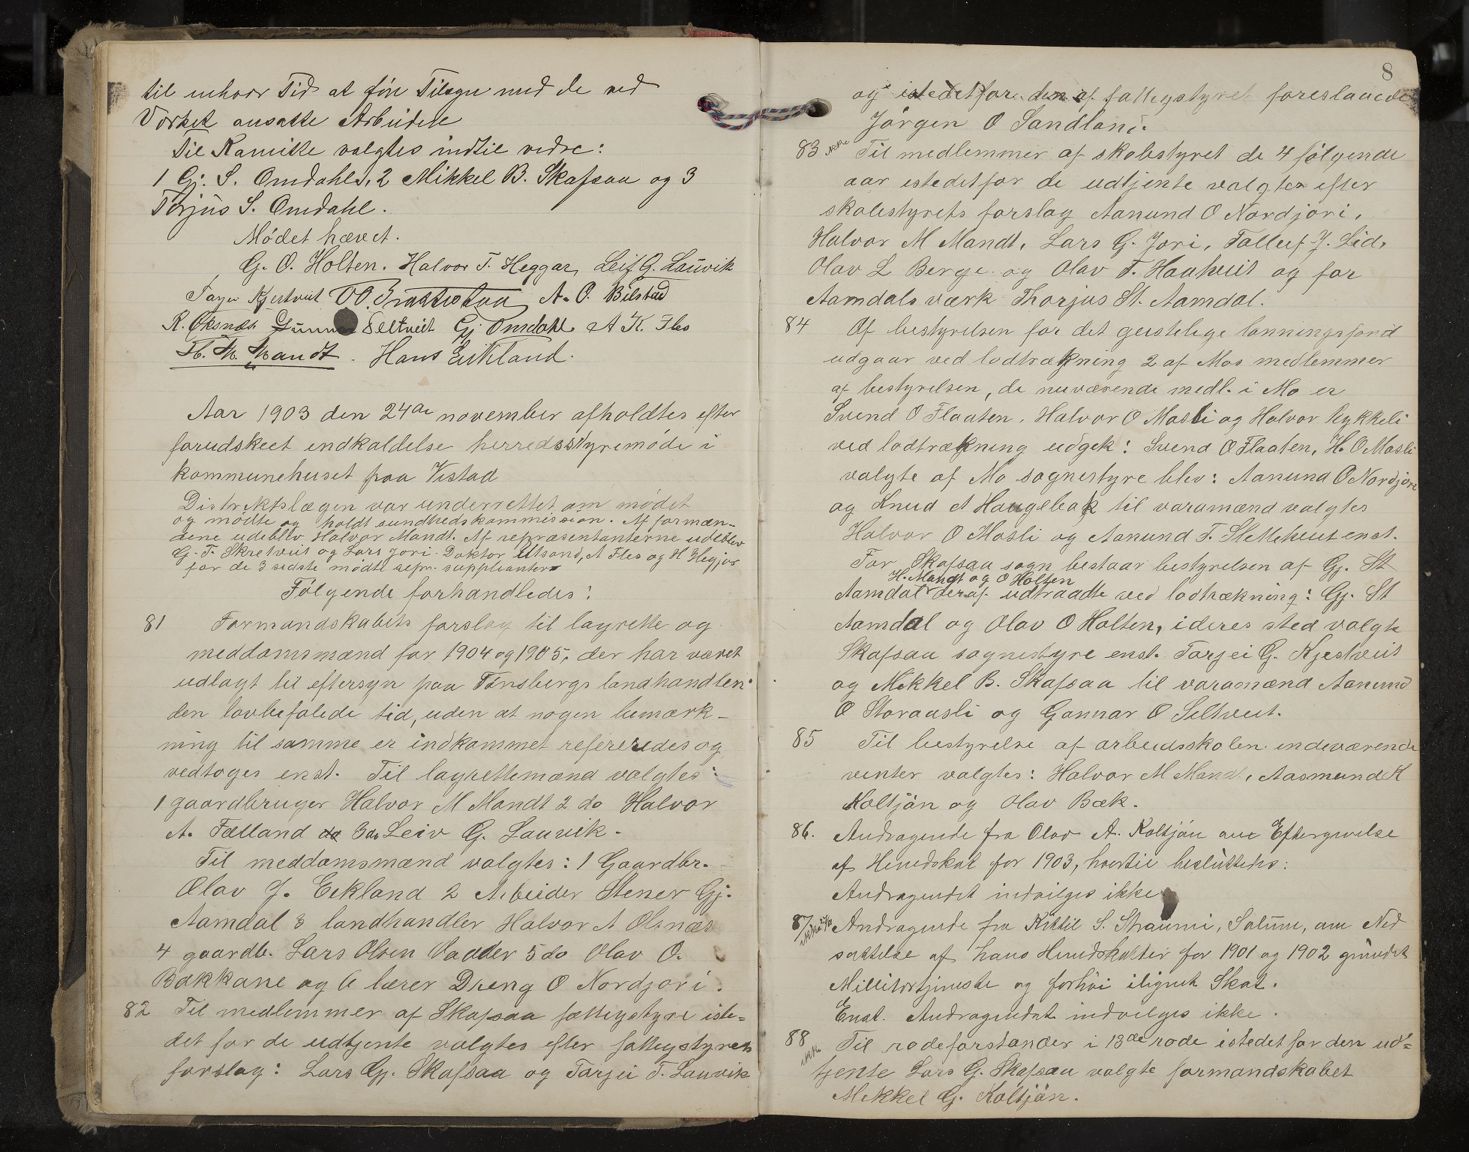 til enhver Tid at före Tilsyn med de ved
Værket ansatte Arbeidere
Til Kamike valgtes indtil videre:
1 Gj. S. Omdahl, 2 Mikkel B. Skafsaa og 3
Torjus S. Omdahl.
Mödet hævet.
G. O. Holten. Halvor T. Heggar Leif G. Lauvik
Kjestveit A. O. Bilstad
R. Öksnes Gunnar Seltveit Gj Omdahl A K. Fles
H. M Mandt. Hans Eikland.
Aar 1903 den 24de november afholdtes efter
forudskeet indkaldelse herredsstyremöde i
kommunehuset paa Vistad
Distriktslægen var underrettet om mödet
og mödte og holdt sundhedskommission. Af formæn-
dene udeblev Halvor Mandt. Af repræsentanterne udeblev
G. T. Skretveit og Lars Jori. Doktor Utsond, A Fles og H Hegjor
for de 3 sidste mödte repr. suppleanter
Fölgende forhandledes:
81 Formandskabets forslag til lagrette og
meddomsmænd for 1904 og 1905, der har været
udlagt til eftersyn paa Tönsbergs landhandleri
den lovbefalede tid, uden at nogen bemærk-
ning til samme er indkommet refereredes og
vedtoges enst. Til lagrettemænd valgtes:
1 gaardbruger Halvor M Mandt 2 do Halvor
A. Fælland 3 do Leiv G. Lauvik.
Til meddomsmænd valgtes: 1 Gaardbr.
Olav J. Eikland 2 Arbeider Stener Gj.
Aamdal 3 landhandler Halvor A Olsnæs
4 gaardb. Lars Olsen Vadder 5 do Olav O.
Bakkane og 6 lærer Dreng O Nordjori.
82 Til medlemmer af Skafsaa fattigstyre iste-
det for de udtjente valgtes efter fattigstyrets
forslag: Lars Gj. Skafsaa og Tarjei T. Lauvik
8
og istedetfor den af fattigstyret foreslaaede
Jörgen O Sandland.
83 Til medlemmer af skolestyret de 4 fölgende
aar istedetfor de udtjente valgtes efter
skolestyrets forslag Aanund O Nordjori,
Halvor M Mandt, Lars G. Jori, Tallef J. Lid,
Olav L Berge og Olav T. Haatveit og for
Aamdals værk Thorjus St. Aamdal.
84 Af bestyrelsen for det geistelige lönningsfond
udgaar ved lodtrækning 2 af Mos medlemmer
af bestyrelsen, de nuværende medl. i Mo er
Svend O Flaaten, Halvor O Mosli og Halvor Lykkeli
ved lodtrækning udgik: Svend O Flaaten, H. O Mosli
valgte af Mo sognestyre blev: Aanund O Nordjori
og Knud A Haugebak til varamænd valgtes
Halvor O Mosli og Aanund T. Steltveit enst.
For Skafsaa sogn bestaar bestyrelsen af Gj. St
H. Mandt og O Holten
Aamdal deraf udtraadte ved lodtrækning: Gj. St
Aamdal og Olav O Holten, i deres sted valgte
Skafsaa sognestyre enst. Tarjei G. Kjestveit
og Mekkel B. Skafsaa til varamænd Aanund
O Storaasli og Gonnar O Seltveit.
85 Til bestyrelse af arbeidsskolen indeværende
vinter valgtes: Halvor M Mandt, Aasmund K
Koltjön og Olav Bæk.
86. Andragende fra Olav A. Koltjön om Eftergivelse
af Herredskat for 1903, hvortil beslüttetes:
Andragendet indvilges ikke
87 Andragende fra Kittil S. Straumi, Solum, om Ned
sættelse af hans Herredskatter for 1901 og 1902 grundet
Millitærtjeneste og forhöi ilignet Skat.
Enst. Andragendet indvilges ikke.
88 Til rodeforstander i 13de rode istedetfor den ud-
tjente Lars G. Skafsaa valgte formandskabet
Mekkel G. Koltjön.